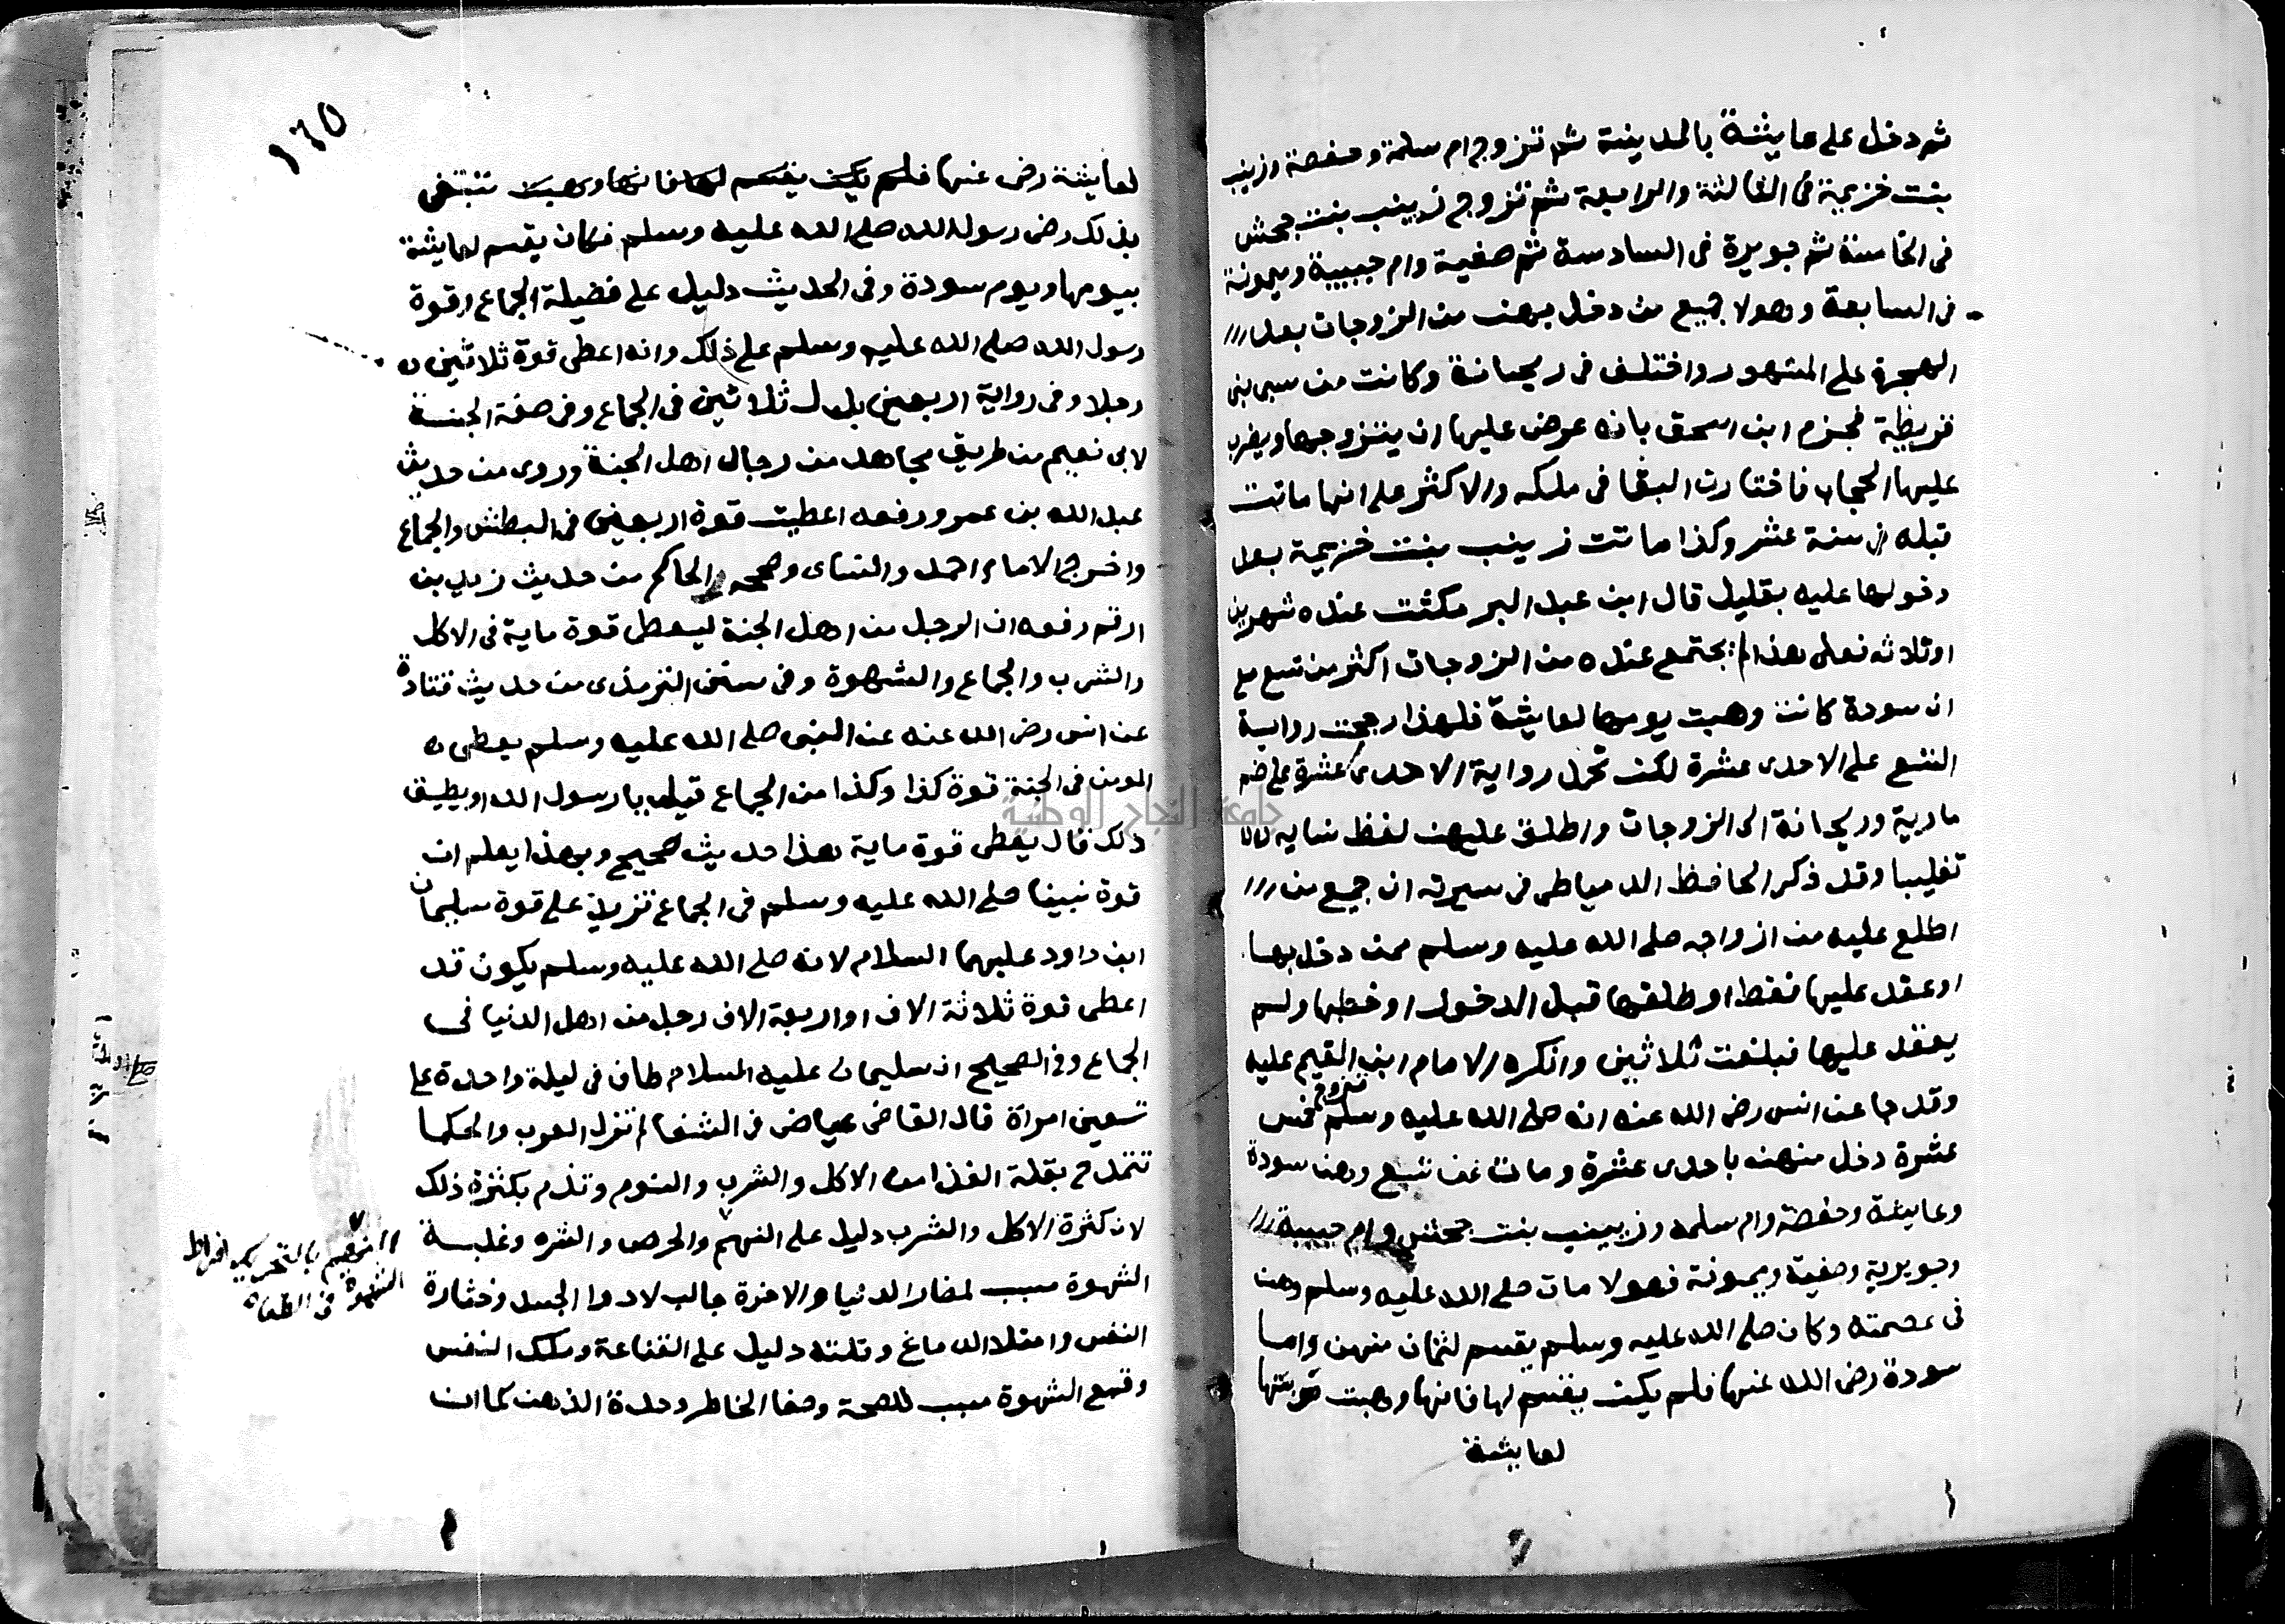 ثم دخل على عايشة بالمدينة ثم تزوج ام سلمة وحفصة وزينب
بنت خزيمة في الثالثة والرابعة ثم تزوج زينب بنت جحش
في الخامسة ثم جويرة في السادسة ثم صفية وام حبيبة وميمونة
في السابعة وهولا جميع من دخل بهن من الزوجات بعد
الهجرة على المشهور واختلف في ريحانة وكانت من سبي بني
قريظة فجزم ابن اسحق بانه عرض عليها ان يتزوجها ويضرب
عليها الحجاب فاختارت البقا في ملكه والاكثر على انها ماتت
قبله في سنة عشر وكذا ماتت زينب بنت خزيمة بعد
دخولها عليه بقليل قال ابن عبد البر مكثت عنده شهرين
او ثلاثه فعلى هذا لم يجتمع عنده من الزوجات اكثر من تسع مع
ان سودة كانت وهبت يومها لعايشة فلهذا رجحت رواية
التسع على الاحدى عشرة لكن تحمل رواية الاحدى عشرة على ضم
مارية وريحانة الى الزوجات واطلق عليهن لفظ نسايه
تغليبا وقد ذكر الحافظ الدمياطي في سيرته ان جميع من
اطلع عليه من ازواجه صلى الله عليه وسلم ممن دخل بها
او عقد عليها فقط او طلقها قبل الدخول او خطبها ولم
يعقد عليها فبلغت ثلاثين وانكره الامام ابن القيم عليه
وقد جا عن انس رضي الله عنه انه صلى الله عليه وسلم تزوج خمس
عشرة دخل منهن باحدى عشرة ومات عن تسع وهن سودة
وعايشة وحفصة وام سلمه وزينب بنت جحش وام حبيبة
وجويرية وصفية وميمونة فهولا مات صلى الله عليه وسلم وهن
في عصمته وكان صلى الله عليه وسلم يقسم لثمان منهن واما
سودة رضي الله عنها فلم يكن يقسم لها فانها وهبت نوبتها
لعايشة
١٦٥
لعايشة رضي عنها فلم يكن يقسم لها فانها وهبت تبتغي
بذلك رضى رسول الله صلى الله عليه وسلم فكان يقسم لعايشة
بيومها ويوم سودة وفي الحديث دليل على فضيلة الجماع وقوة
رسول الله صلى الله عليه وسلم على ذلك وانه اعطى قوة ثلاثين
رجلا وفي رواية اربعين بدل ثلاثين في الجماع وفي صفة الجنة
لابي نعيم من طريق مجاهد من رجال اهل الجنة وروى من حديث
عبد الله بن عمرو رفعه اعطيت قوة اربعين في البطش والجماع
واخرج الامام احمد والنساى وصححه الحاكم من حديث زيد بن
ارقم رفعه ان الرجل من اهل الجنة ليعطى قوة ماية في الاكل
والشرب والجماع والشهوة وفي سنن الترمذى من حديث قتادة
عن انس رضي الله عنه عن النبي صلى الله عليه وسلم يعطى
المومن في الجنة قوة كذا وكذا من الجماع قيل يا رسول الله اويطيق
ذلك قال يعطى قوة ماية هذا حديث صحيح وبهذا يعلم ان
قوة نبينا صلى الله عليه وسلم في الجماع تزيد على قوة سليمان
ابن داود عليهما السلام لانه صلى الله عليه وسلم يكون قد
اعطى قوة ثلاثة الاف او اربعة الاف رجل من اهل الدنيا في
الجماع وفي الصحيح ان سليمان عليه السلام طاف في ليلة واحدة على
تسعين امراة قال القاضي عياض في الشفا لم تزل العرب والحكما
تتمدح بقلة الغذا من الاكل والشرب والنوم وتذم بكثرة ذلك
لان كثرة الاكل والشرب دليل على النهم والحرص والشره وغلبة
الشهوة سبب لمضار الدنيا والاخرة جالب لادوا الجسد وخثارة
النفس وامتلا الدماغ وقلته دليل على القناعة وملك النفس
وقمع الشهوة سبب للصحة وصفا الخاطر وحدة الذهن كما ان
النهم بالتحريك افراط
الشهوة في الطعام
جامعة النجاح الوطنية